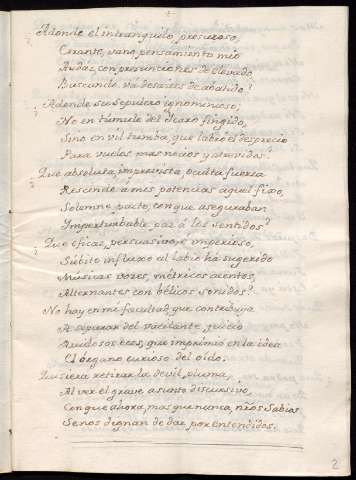 Adonde el intranquilo, presuroso,
Errante, vano pensamiento mio
Audáz, con presunciones de elevado,
Buscando vá desaires de abatido?
Adonde su sepulcro ignominioso;
No en túmulo del Icaro fingido,
Sino en vil tumba, que labró el desprecio
Para vuelos mas necios y atrevidos?
Que absoluta, imprevista, oculta fuerza
Rescinde à mis potencias aquel fixo,
Solemne pacto, con que aseguraban
Imperturbable paz à los sentidos?
Que eficaz, persuasivo, è imperioso,
Súbito influxo al labio ha sugerido
Músicas vozes, métricos acentos,
Alternantes con bélicos sonidos?
No hay en mi facultad, que contribuya
A separar del vacilante juicio
Ruidosos ecos, que imprimió en la idea
El órgano curioso del oido.
Quisiera retirar la devil pluma,
Al ver el grave asunto discursivo,
Con que ahora, mas que nunca, nrõs Sabios
Se nos dignan de dar por entendidos.
2